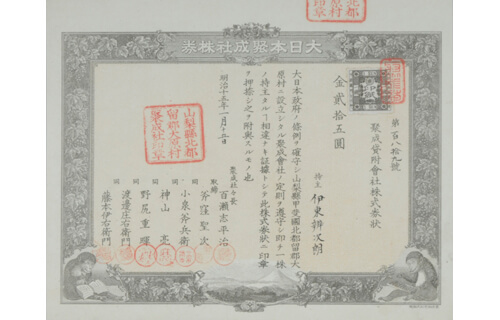 大日本聚成社株券
第百八拾九號
聚成貸附會社株式券状
金貳拾五圓
株主 伊東 次朗
大日本政府ノ條例ヲ確守シ山梨縣甲斐國北都留郡大
原村ニ設立シタル聚成會社ノ定則ヲ遵守シ即チ一株
ノ持主タル 相違ナキ証據トシテ此株式券状ニ印章
ヲ押捺シ之ヲ附與スルモノ也
明治十五年一月十五日
聚成社々長 百瀬志平治
取締 斧窪聖次
同 小泉斧兵衛
同 神山
同 野尻重
同 渡邊庄右衛門
同 藤本伊右衛門
山梨縣北都
留郡大原村
聚成社印章